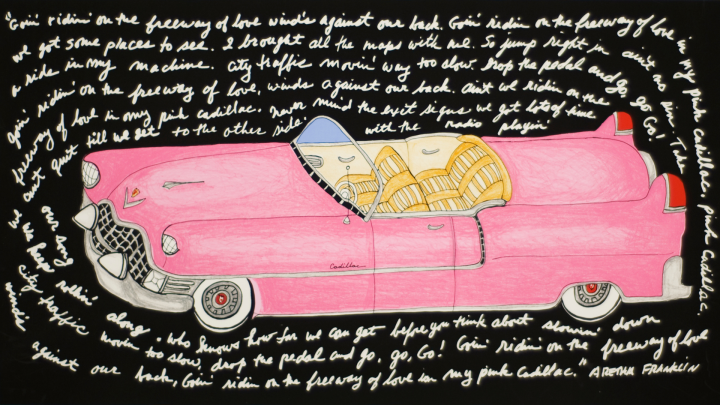 "Goin' ridin' on the freeway of love winds against our back. Goin' ridin on the freeway of love in my pink Cadillac, pink Cadillac,
we got some places to see. I brought all the maps with me. So jump right in aint no sin. Take
a ride in my machine. City traffic movin' way too slow. Drop the pedal and go, go Go!
Goin' ridin' on the freeway of love, winds against our back. Aint we ridin on the
freeway of love in my pink Cadillac. never mind the exit signs we got lots of time
aint quit till we get to the other side. with the radio playin'
our song
we keep rollin' along. who knows how far we can get before you think about slowin' down
city traffic movin too slow, drop the pedal and go, go, Go! Goin' ridin' on the freeway of love
winds against our back, Goin' ridin on the freeway of love in my pink Cadillac." ARETHA FRANKLIN
Cadillac